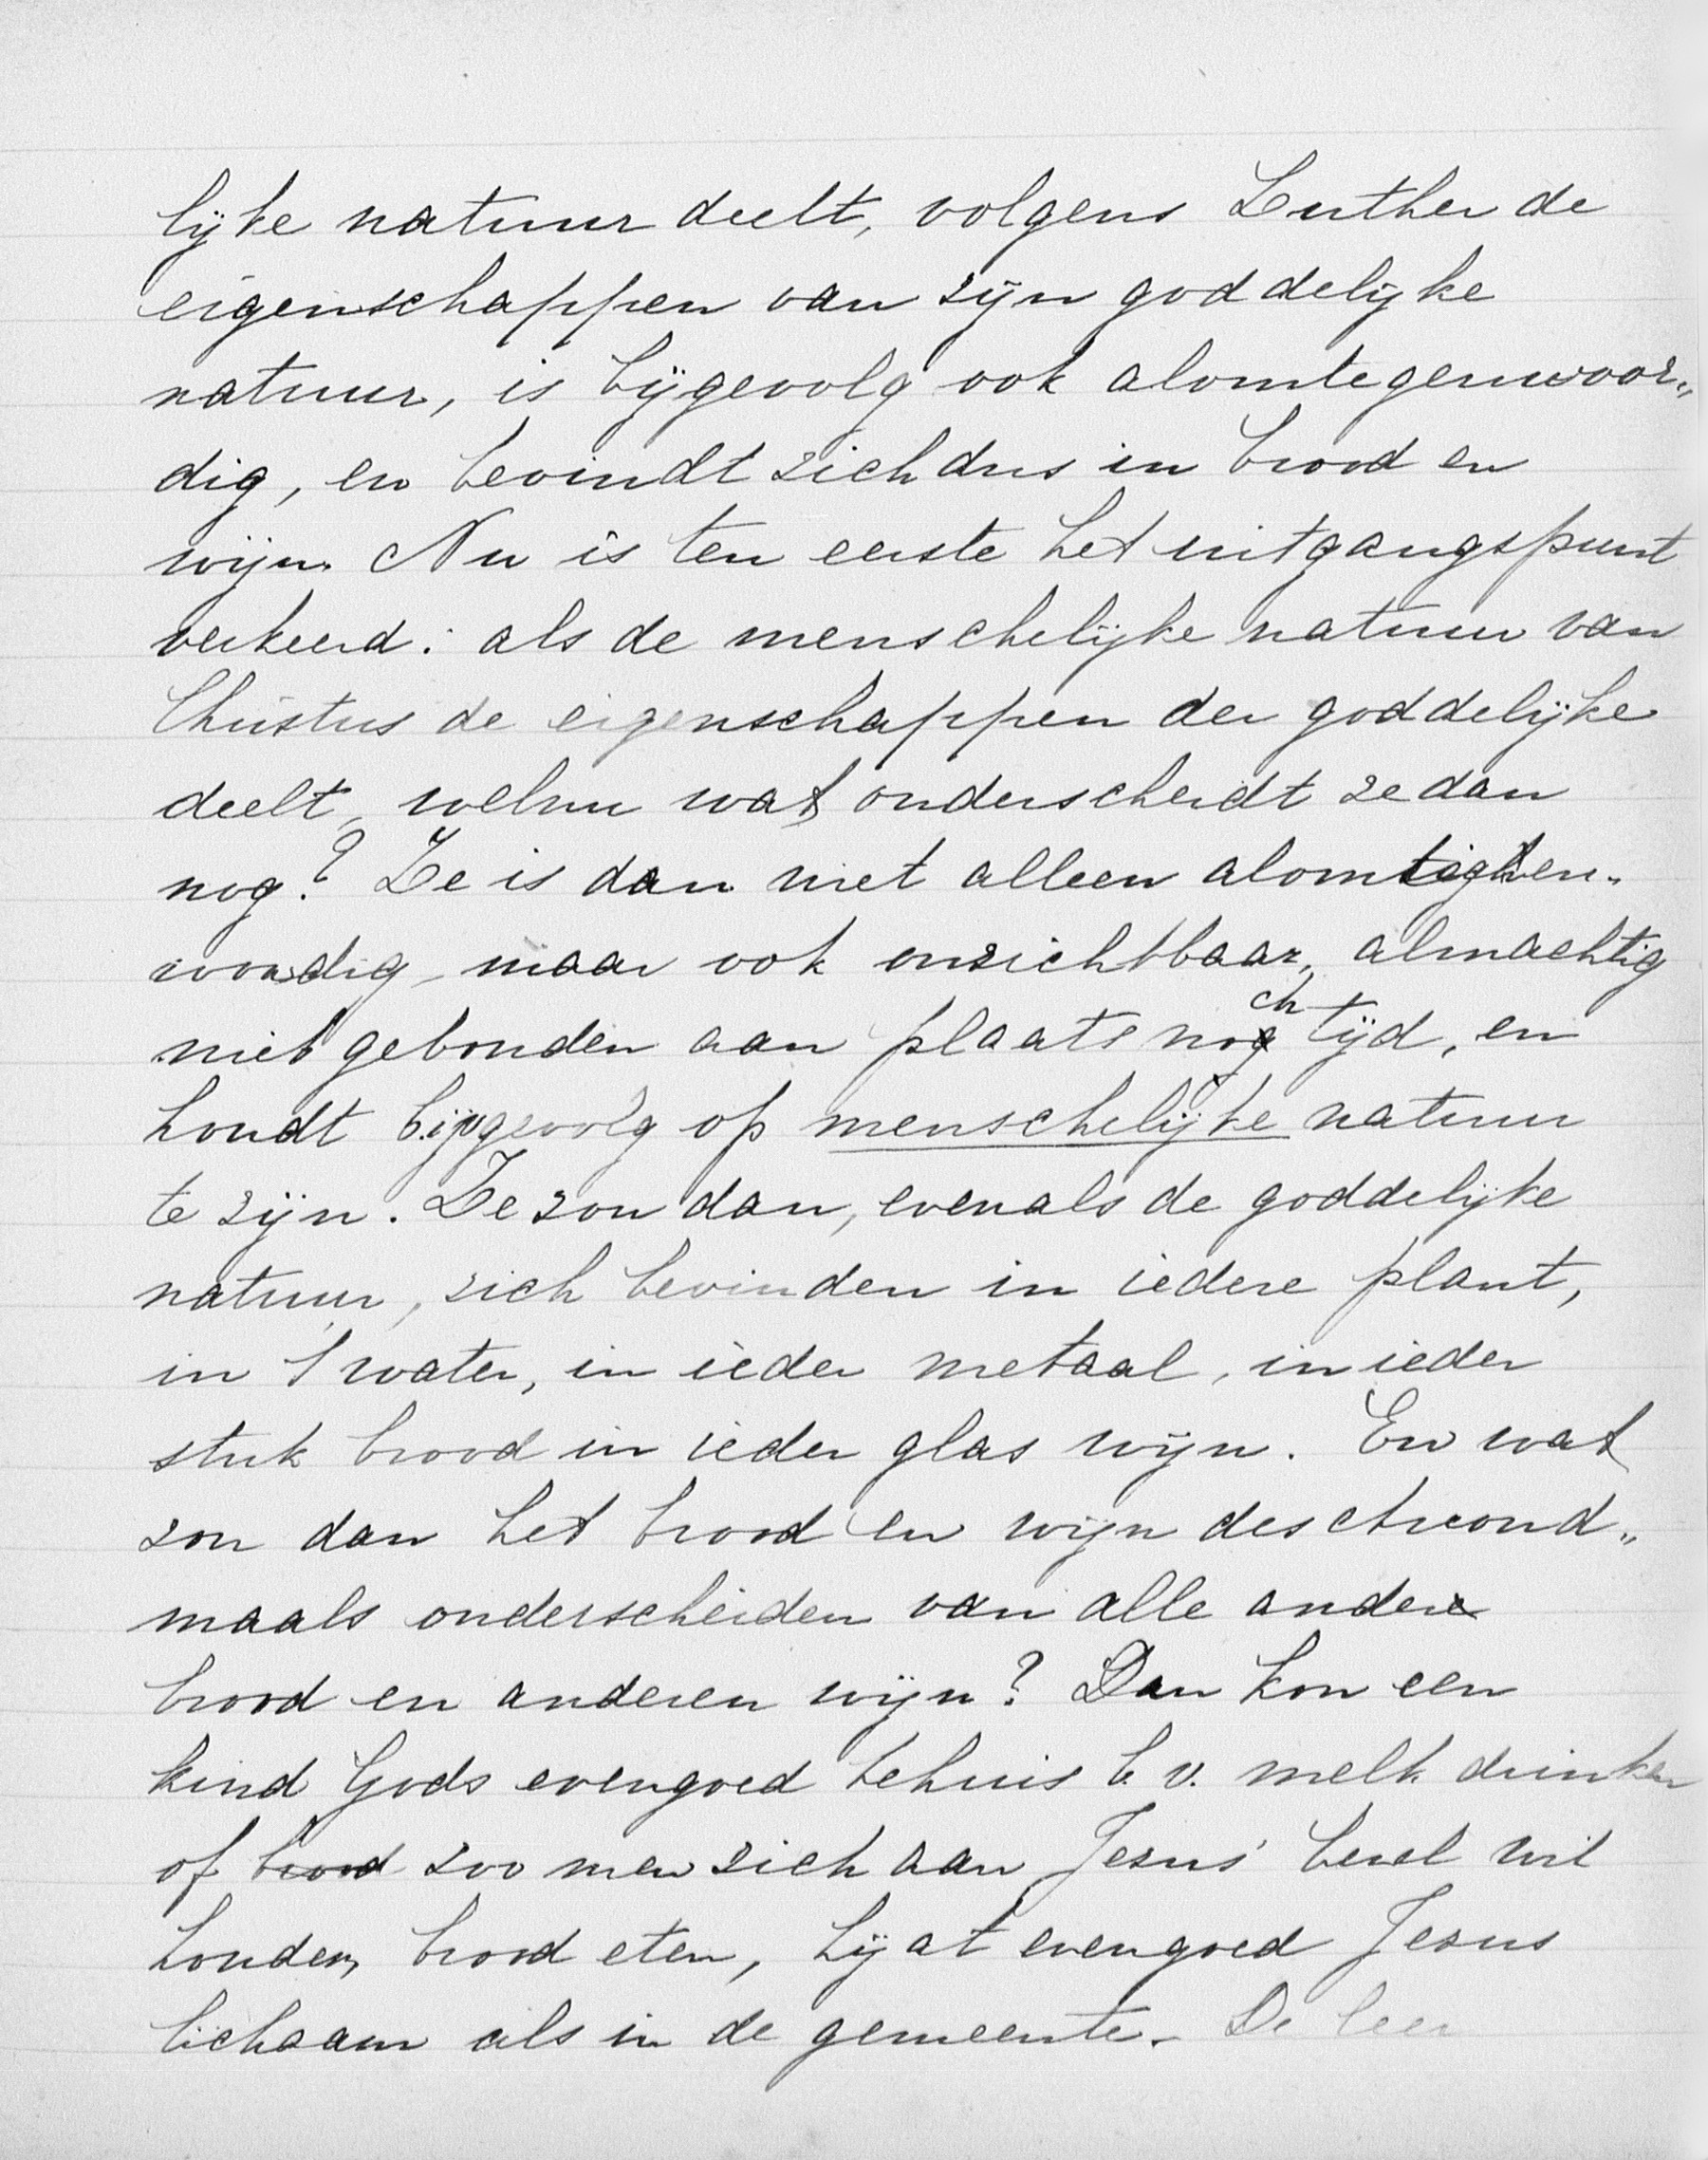 lijke natuur deelt, volgens Luther de
eigenschappen van zijn goddelijke
natuur, is bijgevolg ook alomtegenwoor„
dig, en bevindt zich dus in brood en
wijn. Nu is ten eerste het uitgangspunt
verkeerd: als de menschelijke natuur van
Christus de eigenschappen der goddelijke
deelt, welnu wat onderscheidt ze dan
nog? Ze is dan niet alleen alomtegen„
woordig, maar ook onzichtbaar, almachtig
niet gebonden aan plaats noch tijd, en
houdt bijgevolg op menschelijke natuur
te zijn. Ze zou dan, evenals de goddelijke
natuur, zich bevinden in iedere plant,
in 't water, in ieder metaal, in ieder
stuk brood in ieder glas wijn. En wat
zou dan het brood en wijn des Avond„
maals onderscheiden van alle ander
brood en anderen wijn? Dan kon een
kind Gods evengoed tehuis b.v. melk drinken
of brood zoo men zich aan Jezus' bevel wil
houden, brood eten, hij at evengoed Jezus
lichaam als in de gemeente. De leer